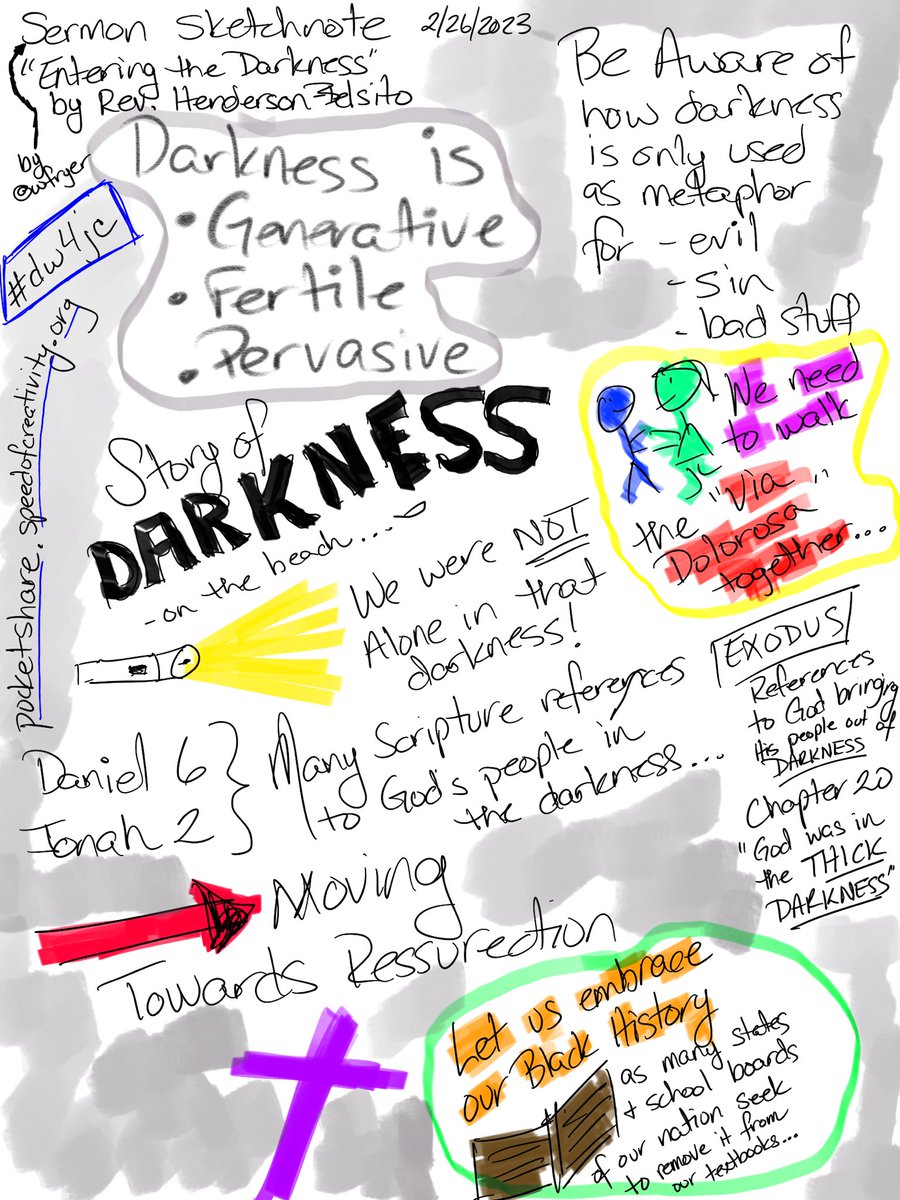 Sermon Sketchnote 2/26/2023
"Entering the Darkness"
by Rev. Henderson-Belsito
by
@wfryer
#dw4jc
pocketshare.speedofcreativity.org
Darkness is
• Generative
• Fertile
• Pervasive
Be Aware of
how darkness
is only used
as metaphor
for - evil
- sin
- bad stuff
We need
to walk
the "Via
Dolorosa"
together...
Story of
DARKNESS
- on the beach....
We were NOT
Alone in that
darkness!
EXODUS
References
to God bringing
His people out of
DARKNESS
Chapter 20
"God was in
the THICK
DARKNESS"
Daniel 6
Jonah 2
Many Scripture references
to God's people in
the darkness...
Moving
Towards Ressurection
Let us embrace
our Black History
as many states
+ school boards
of our nation seek
to remove it from
our textbooks...